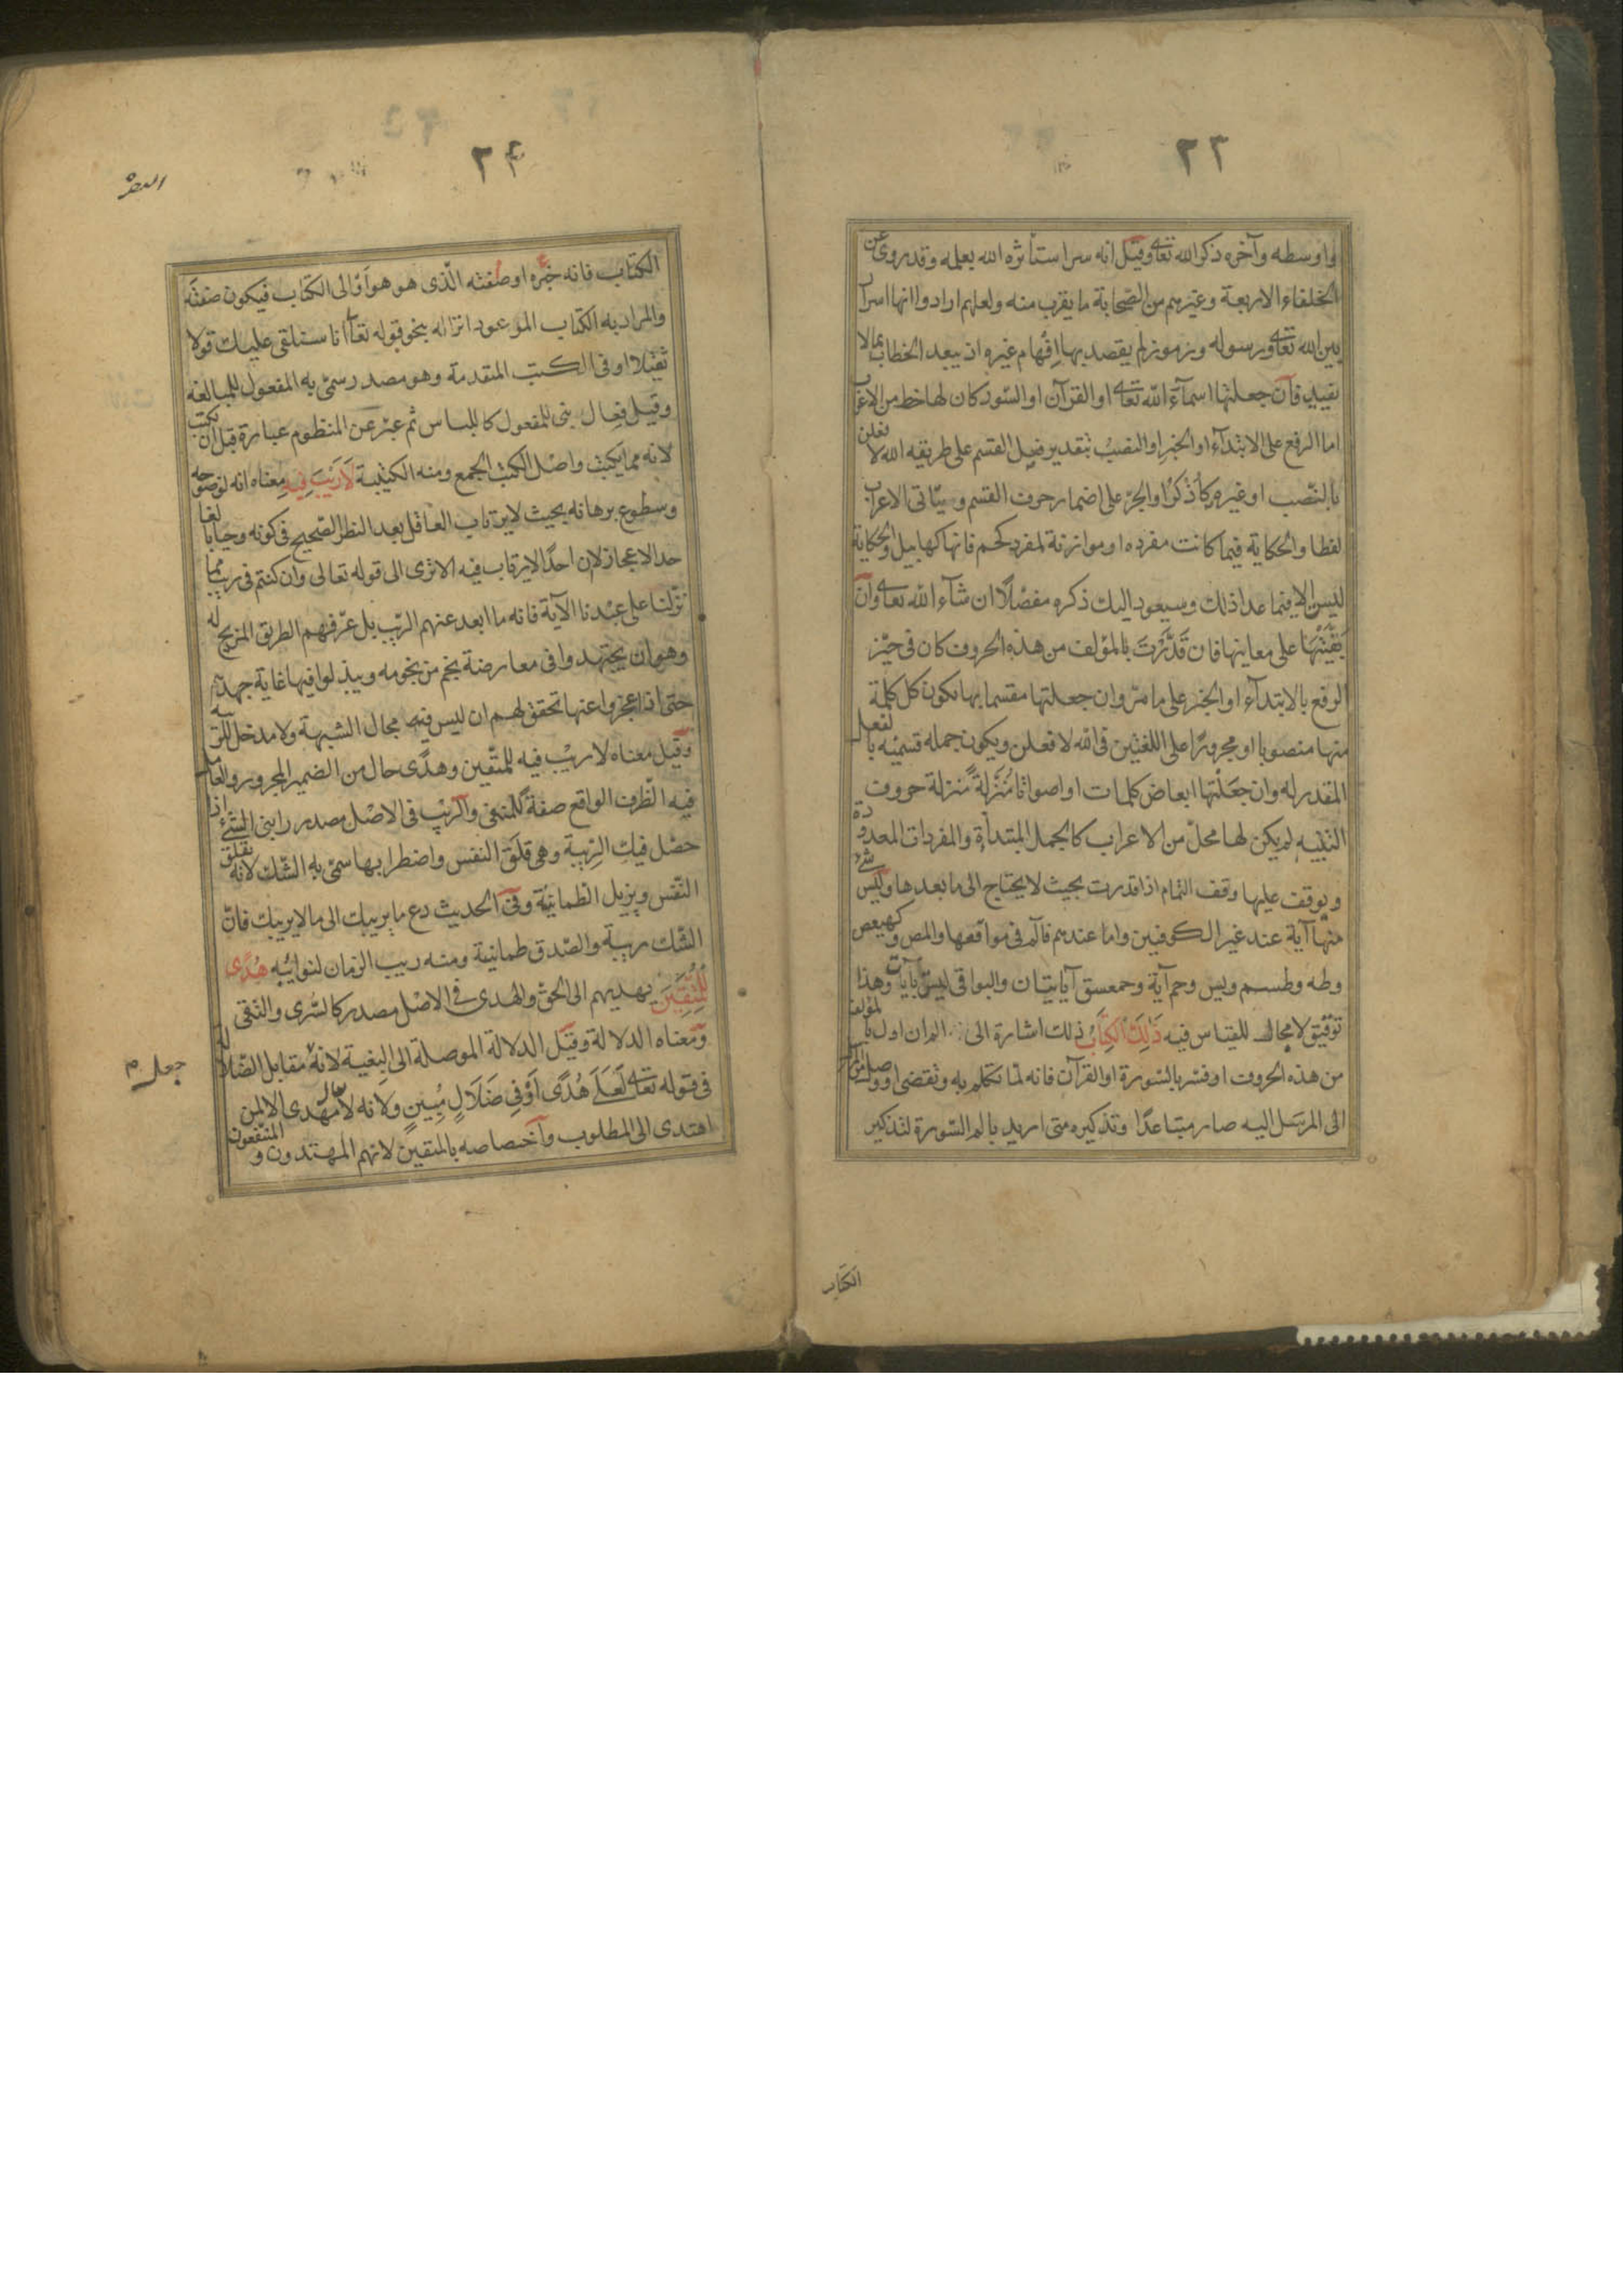 ٢٣
واوسطه وآخره ذكر الله تعالى وقيل انه سر استأثره الله بعلمه وقد روى عن
الخلفاء الاربعة وغيرهم من الصّحابة ما يقرب منه ولعلهم ارادوا انها اسرار
بين الله تعالى ورسوله ورموز لم يقصد بها افهام غيره اذ يبعد الخطاب بما لا
يفيد فان جعلتها اسماء الله تعالى او القرآن او السّور كان لها حظ من الاعراب
اما الرفع على الابتداء او الخبر او النصب بتقدير فعل القسم على طريقه الله لا فعلن
بالنّصب او غيره كاذكر او الجرّ على اضمار حرف القسم ويتأتى الاعراب
لفظا والحكاية فيما كانت مفرده او موازنة لمفرد كحم فانها كهابيل والحكاية
ليس الا فيما عدا ذلك وسيعود اليك ذكره مفصّلا ان شاء الله تعالى وان
بقّيتها على معانيها فان قدّرت بالمؤلف من هذه الحروف كان في حيّز
الرفع بالابتداء او الخبر على ما مرّ وان جعلتها مقسما بها يكون كل كلمة
منها منصوبا او مجرورًا على اللغتين في الله لافعلن ويكون جمله قسميّه بالفعل
المقدر له وان جعلتها ابعاض كلمات او اصواتا مُنَزلةً منزلة حروف
التنبيه لم يكن لها محلّ من الاعراب كالجمل المبتدأة والمفردات المعدودة
ويوقف عليها وقف التمام اذا قدرت بحيث لا يحتاج الى ما بعدها وليس شئ
منها آية عند غير الكوفيين واما عندهم فالم في مواقعها والمص وكهيعص
وطه وطسم ويس وحم آية وحمعسق آيتان والبواقي ليس بآيات وهذا
توقيف لا مجال للقياس فيه ذَٰلِكَ الْكِتَابُ ذلك اشارة الى الم ان اول بالمؤلف
من هذه الحروف او فسر بالسّورة او القرآن فانه لمّا تكلم به وتقضى او وصل من المرسل
الى المرسَل اليه صار متباعدًا وتذكيره متى اريد بالم السّورة لتذكير
الكتاب
٢٤
البقرة
الكتاب فانه خبره او صفته الّذى هو هو أو الى الكتاب فيكون صفته
والمراد به الكتاب الموعود انزاله بنحو قوله تعالى انا سنلقى عليك قولا
ثقيلا او في الكتب المتقدمة وهو مصدر سمّى به المفعول للمبالغة
وقيل فعال بنى للمفعول كاللباس ثم عبّر عن المنظوم عبارة قبل ان تكتب
لانه مما يكتب واصل الكتب الجمع ومنه الكتيبة لَارَيْبَ فِيهِ معناه انه لوضوحه
وسطوع برهانه بحيث لا يرتاب العاقل بعد النظر الصّحيح في كونه وحيا بالغا
حد الاعجاز لان احدًا لا يرتاب فيه الا ترى الى قوله تعالى وان كنتم في ريب مما
نزّلنا على عبدنا الآية فانه ما ابعد عنهم الرّيب بل عرّفهم الطريق المزيح له
وهو ان يجتهدوا فى معارضة نجم من نجومه ويبذلوا فيها غاية جهدهم
حتى اذا عجزوا عنها تحقق لهم ان ليس فيه مجال الشبهة ولا مدخل للريبة
وقيل معناه لا ريب فيه للمتّقين وهدًى حال من الضمير المجرور والعامل
فيه الظّرف الواقع صفة للمنفى والريب في الاصل مصدر رابنى الشئ اذا
حصّل فيك الرّيبة وهى قلق النفس واضطرابها سمّى به الشّك لانه يقلق
النّفس ويزيل الطمانينة وفى الحديث دع ما يريبك الى ما لا يريبك فانّ
الشّك ريبة والصّدق طمانينة ومنه ريب الزمان لنوائبه هُدًى
لِلْمُتَّقِينَ يهديهم الى الحق والهدى فى الاصل مصدر كالسّرى والتّقى
ومعناه الدلالة وقيل الدلالة الموصلة الى البغية لانه جعل مقابل الضّلالة
فى قوله تعالى لَعَلَى هُدًى أَوْ فِى ضَلَالٍ مُبِينٍ ولانه لا يقال مهدى الا لمن
اهتدى الى المطلوب واختصاصه بالمتقين لانهم المهتدون والمنتفعون